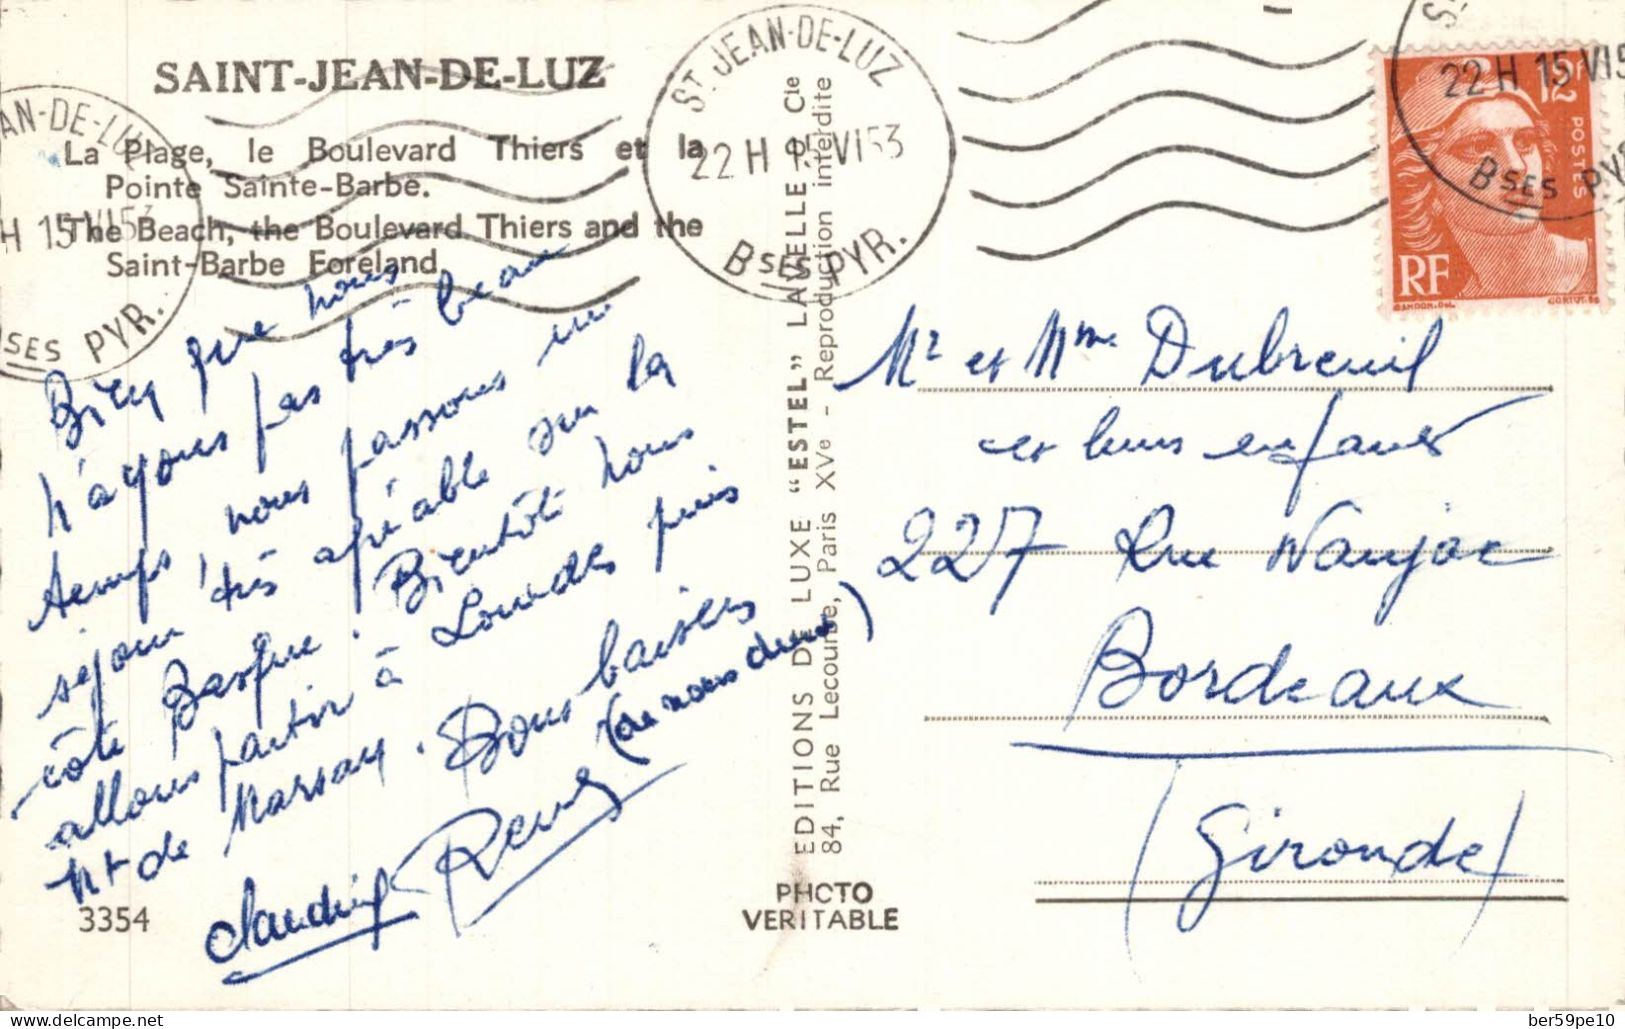 SAINT-JEAN-DE-LUZ
La Plage, le Boulevard Thiers et la
Pointe Sainte-Barbe.
The Beach, the Boulevard Thiers and the
Saint-Barbe Foreland
AN-DE-LUZ
H 15 VI 53
SES PYR.
ST JEAN-DE-LUZ
22 H 15 VI 53
BSES PYR.
22 H 15 VI5
BSES PY
12F
POSTES
RF
GANDON.DEL.
CORTOT.SC
Bien que nous
n'ayons pas très beau
temps, nous passons un
séjour très agréable sur la
côte Basque. Bientôt nous
allons partir à Lourdes puis
Mt de Marsan. Bons baisers
(de nous deux)
Claudine Rémy
3354
EDITIONS DE LUXE "ESTEL" LAVELLE & Cie
84, Rue Lecourbe, Paris XVe - Reproduction interdite
PHOTO
VERITABLE
Mr et Mme Dubreuil
et leurs enfants
227 Rue Naujac
Bordeaux
(Gironde)
www.delcampe.net
ber59pe10